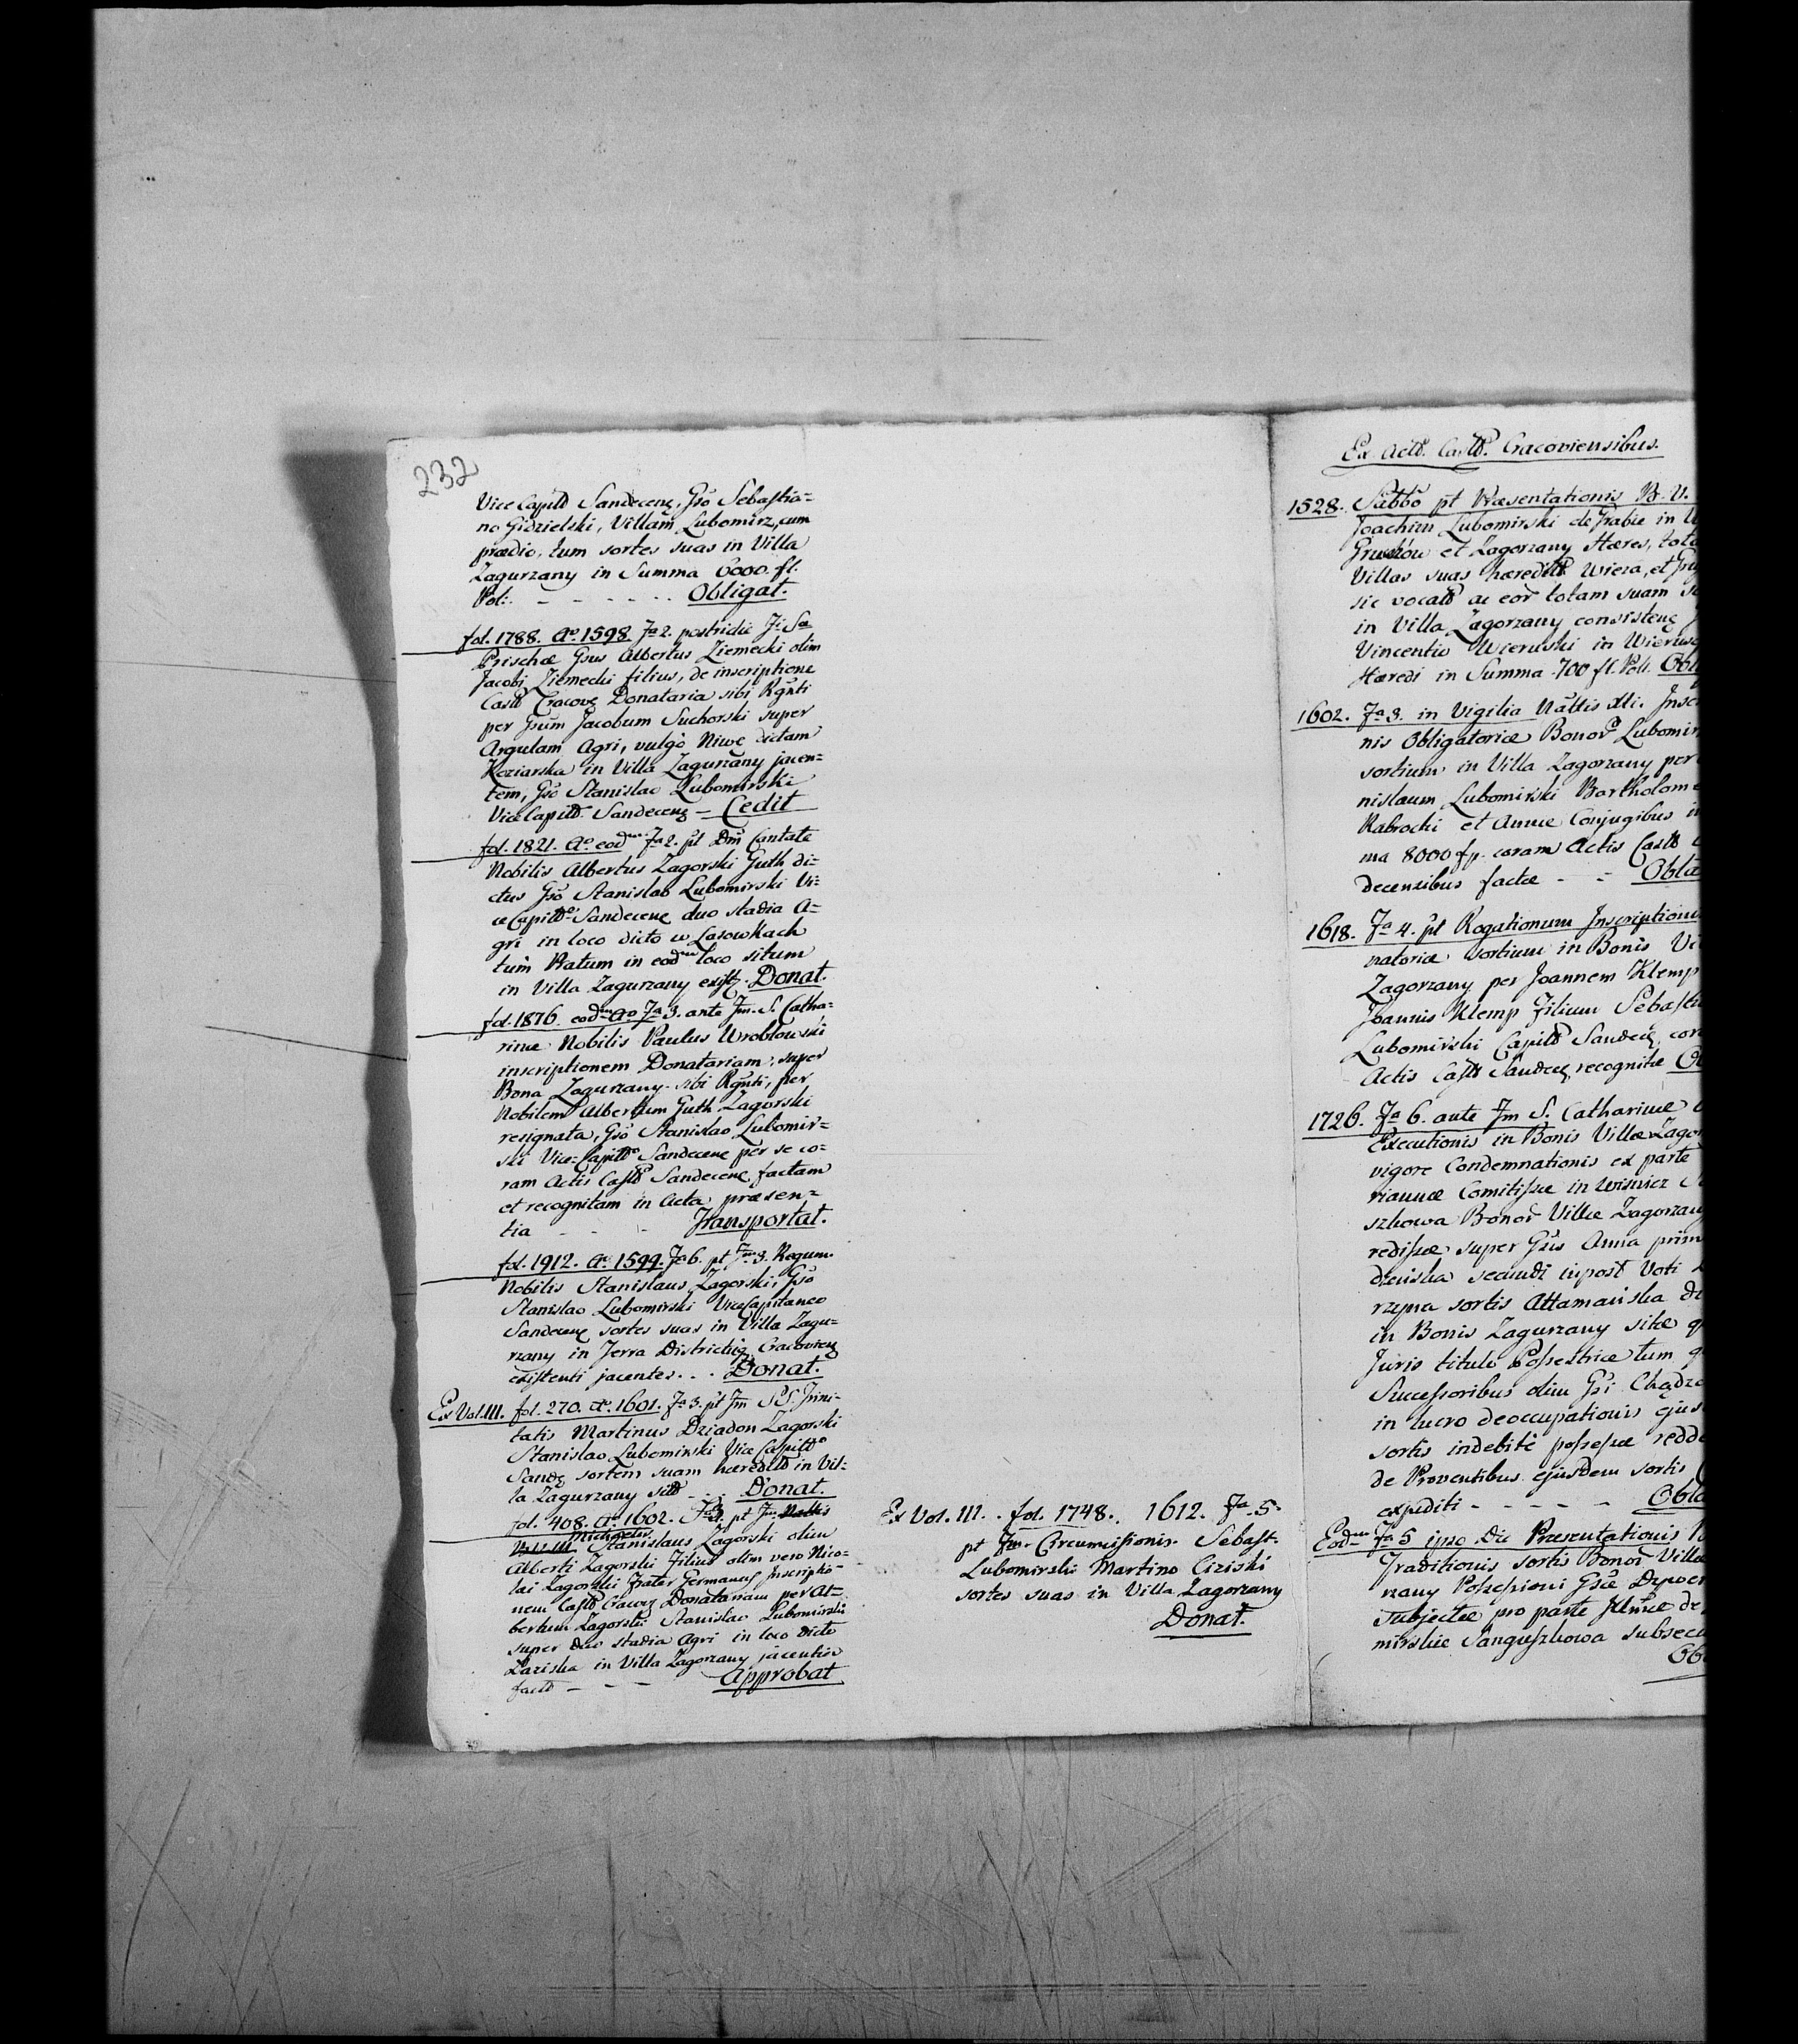 232
Vice Capitd Sandecenẹ, Gso Sebastia=
no Gidzielski, Villam Lubomirz, cum
prædio, tum sortes suas in Villa
Zagurzany in Summa 6000. fl.
Pol: - - - - . . Obligat.
fol. 1788. Aº. 1598. Fª 2. postridie Fi Sæ
Prischæ Gsus Albertus Ziemecki olim
Jacobi Ziemecki filius, de inscriptione
Castr Cracovẹ Donataria sibi Rgnti
per Gsum Jacobum Suchorski super
Argulam Agri, vulgò Niwe dictam
Koziarska in Villa Zagurzany jacen=
tem, Gso Stanislao Lubomirski
Vice Capitd. Sandecenẹ - Cedit
fol. 1821. Aº. eodm. Fª 2. pt Dm Cantate
Nobilis Albertus Zagorski Guth di=
ctus Gso Stanislao Lubomirski Vi=
ce Capitdº Sandecenẹ duo stadia A=
gri in loco dicto w Lasowkach
tum Pratum in eodm loco situm
in Villa Zagurzany existẹ. Donat.
fol. 1876. eodm aº Fª 3. ante Fm. S. Catha=
rinæ Nobilis Paulus Wroblowski
inscriptionem Donatariam, super
Bona Zagurzany sibi Rgnti, per
Nobilem Albertum Guth Zagorski
resignata, Gso Stanislao Lubomir=
ski Vice-Capitdº Sandecenẹ per se co=
ram Actis Castr Sandecenẹ factam
et recognitam in Acta præsen=
tia - - Transportat.
fol. 1912. Aº. 1599. Fª 6. pt Fm 3. Regum.
Nobilis Stanislaus Zagorski, Gso
Stanislao Lubomirski ViceCapitaneo
Sandecenẹ sortes suas in Villa Zagu=
rzany in Terra Districtuq Cracovienẹ
existenti jacentes. . . Donat.
Ex Vol. III. fol. 270. Aº. 1601. Fª 3. pt Fm SS. Trini-
tatis Martinus Dziadon Zagorski
Stanislao Lubomirski Vice Capitdº
Sandẹ sortem suam hæreditd in Vil=
la Zagurzany sitd - . . Donat.
fol. 408. Aº. 1602. Fª 3. pt Fm. Nattis
Michaelis
Stanislaus Zagorski olim
Alberti Zagorski Filius olim vero Nico=
lai Zagorski Frater Germanus Inscriptio-
nem Castr Cracovẹ Donatariam per Al=
bertum Zagorski Stanislao Lubomirski
super duo stadia Agri in loco dicto
Laziska in Villa Zagorzany jacentis
factd - - - Approbat
Ex Vol. III. . fol. 1748. 1612. Fª 5.
pt Fm. Circumcissionis. Sebast.
Lubomirski Martino Ciziski
sortes suas in Villa Zagorzany
Donat.
Ex Actd. Castr. Cracoviensibus.
1528. Sabbo pt Præsentationis B. V.
Joachim Lubomirski de Grabie in
Gruszów et Zagorzany Hæres, tota
Villas suas hæreditd Wiera, et
sic vocatd ac eor totam suam
in Villa Zagorzany consistenẹ
Vincentio Wieruski in Wierusz
Hæredi in Summa 700 fl. Pol. Obl
1602. Fª 3. in Vigilia Nattis Xti. Inscr
nis Obligatoriæ Bonor Lubomir
sortium in Villa Zagorzany per
nislaum Lubomirski Bartholom
Rabrocki et Annæ Conjugibus in
ma 8000 fp. coram Actis Castr
decensibus factæ - - Obla
1618. Fª 4. pt Rogationum Inscriptionis
natoriæ sortium in Bonis Vi
Zagorzany per Joannem Klemp
Joannis Klemp Filium Sebasti
Lubomirski Capitd Sandecẹ, cor
Actis Castr Sandecẹ recognitæ O
1726. Fª 6. ante Fm S. Catharinæ
Executionis in Bonis Villæ Zagor
vigore Condemnationis ex parte
riannæ Comitissæ in Wisnicz
szkowa Bonor Villæ Zagorzany
redissæ super Gsis Anna prim
dzinska secundi inpost Voti
rzyna sortis Attamańska di
in Bonis Zagurzany sitæ q
Juris titulo Possestricæ tum q
Successoribus olim Gsi Chądz
in lucro deoccupationis ejus
sortis indebitè possessæ redd
de Proventibus ejusdem sortis
expediti - - - - - Obla
Eodm Fª 5 ipso Die Præsentationis
Traditionis sortis Bonor Villæ
rzany Possessioni Gsæ Dywer
subjectæ pro parte Jllmæ de
mirskie Sanguszkowa subsecu
Ob